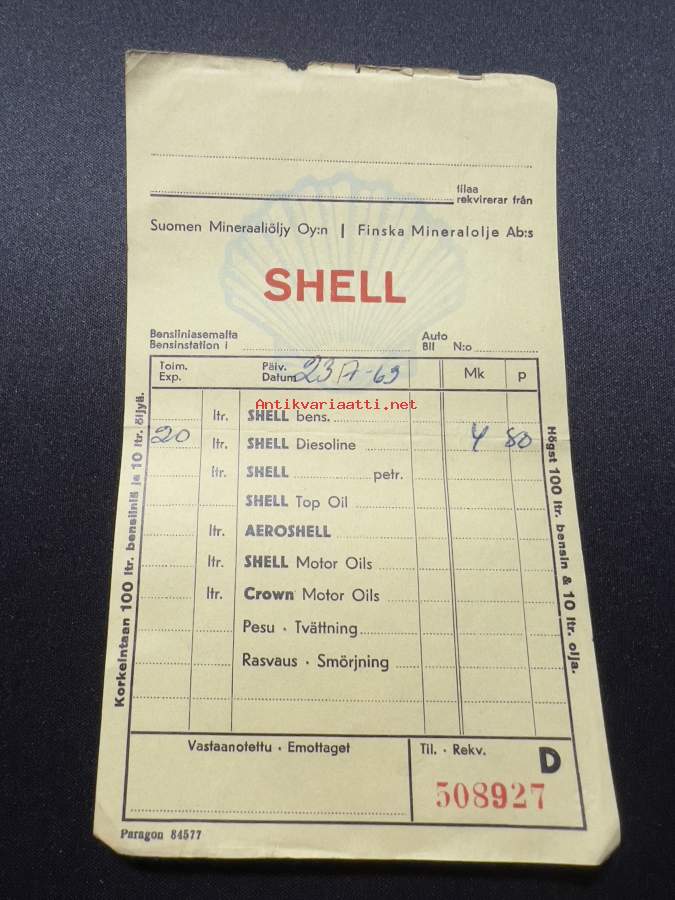 tilaa
rekvirerar från
Suomen Mineraaliöljy Oy:n | Finska Mineralolje Ab:s
SHELL
Bensiiniasemalta
Bensinstation i
Auto
Bil N:o
Toim.
Exp.
Päiv.
Datum 23
Mk p
Antikvariaatti.net
ltr. SHELL bens.
20 ltr. SHELL Diesoline 4 80
ltr. SHELL petr.
SHELL Top Oil
ltr. AEROSHELL
ltr. SHELL Motor Oils
ltr. Crown Motor Oils
Pesu · Tvättning
Rasvaus · Smörjning
Korkeintaan 100 ltr. bensiiniä ja 10 ltr. öljyä.
Högst 100 ltr. bensin & 10 ltr. olja.
Vastaanotettu · Emottaget
Til. · Rekv. D
508927
Paragon 84577